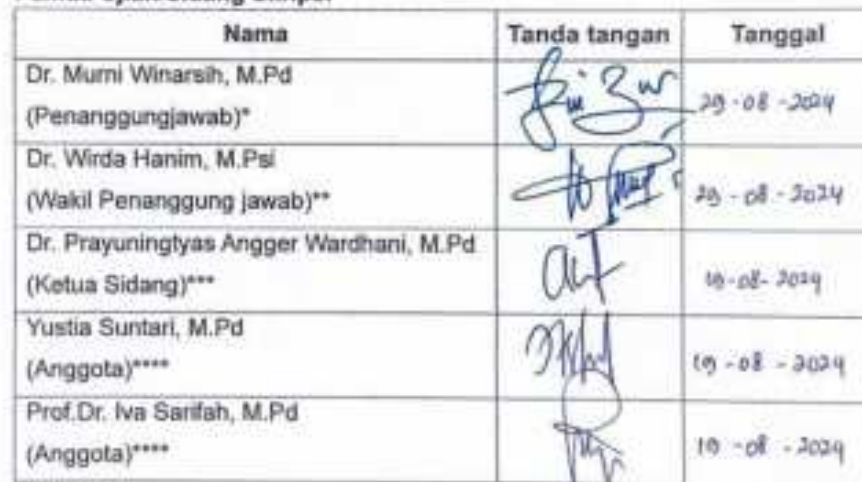 Nama Tanda tangan Tanggal
Dr. Murni Winarsih, M.Pd
(Penanggungjawab)* 29-08-2024
Dr. Wirda Hanim, M.Psi
(Wakil Penanggung jawab)** 29-08-2024
Dr. Prayuningtyas Angger Wardhani, M.Pd
(Ketua Sidang)*** 19-08-2024
Yustia Suntari, M.Pd
(Anggota)**** 19-08-2024
Prof.Dr. Iva Sarifah, M.Pd
(Anggota)**** 19-08-2024